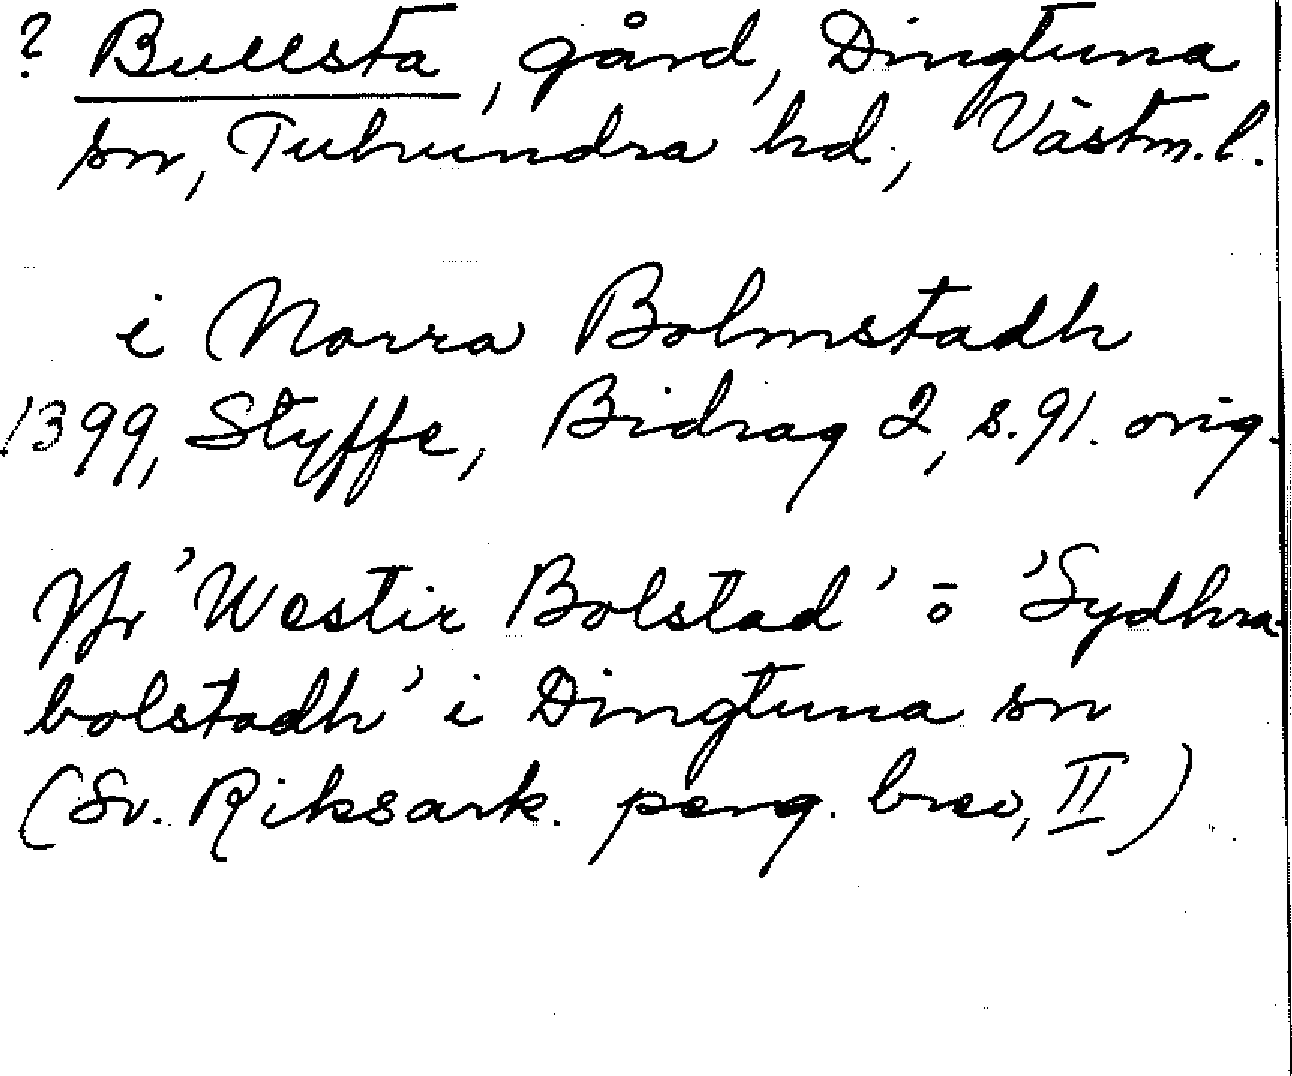 ? Bullsta, gård, Dingtuna
sn, Tuhundra hd., Västm.l.
i Norra Bolmstadh
1399, Styffe, Bidrag 2, s.91. orig.
Jfr 'Westir Bolstad' o 'Sydhra-
bolstadh' i Dingtuna sn
(Sv. Riksark. perg. brev, II)